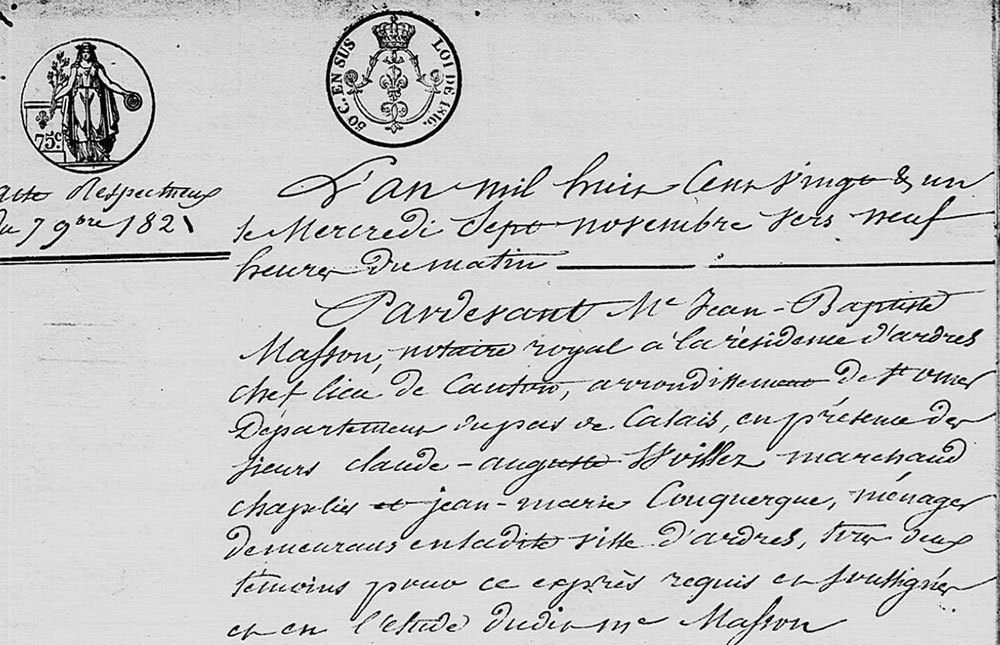 75c.
50 C. EN SUS LOI DE 1816.
acte Respectueux
du 7 9bre 1821
L'an mil huit Cent vingt & un
le Mercredi Sept novembre vers neuf
heures Du matin
Pardevant Me Jean-Baptiste
Masson, notaire royal à la résidence d'ardres
chef lieu de Canton, arrondissement de St omer
Département du pas de Calais, en présence des
sieurs claude-auguste Woillez marchand
chapelier et jean-marie Couquerque, ménager
demeurans en ladite ville d'ardres, tous deux
témoins pour ce exprès requis et soussignés
et en l'étude dudit me Masson